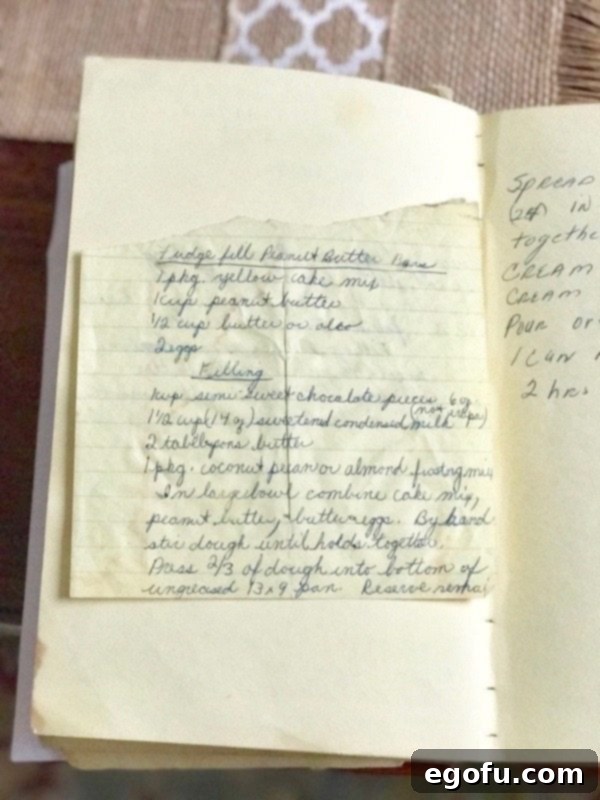 Fudge fill Peanut Butter Bars
1 pkg. yellow cake mix
1 cup peanut butter
1/2 cup butter or oleo
2 eggs
Filling
1 cup semi sweet chocolate pieces 6 oz
1 1/2 cup (14 oz) sweetened condensed milk
2 tablespons butter
1 pkg. coconut pecan or almond frosting mix
In large bowl combine cake mix,
peanut butter, butter eggs. By hand
stir dough until holds together.
Press 2/3 of dough into bottom of
ungreased 13x9 pan. Reserve remai
SPREAD
IN
togethe
CREAM
CREAM
POUR
1 CAN
2 hrs.
egofu.com